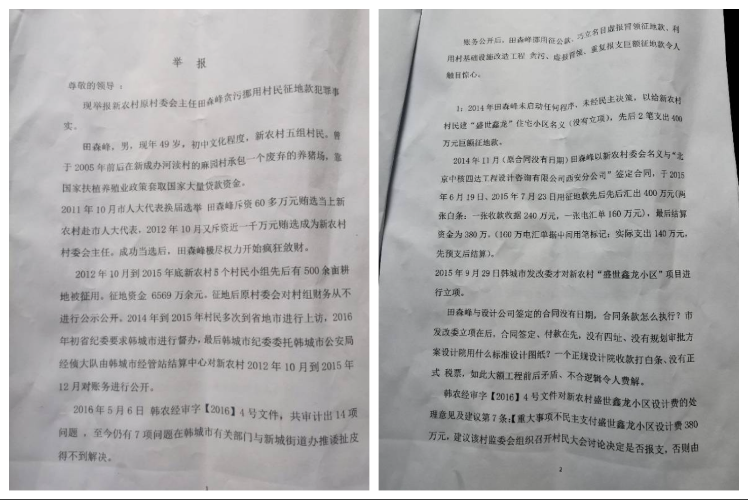 举 报
尊敬的领导：
现举报新农村原村委会主任田森峰贪污挪用村民征地款犯罪事
实。
田森峰，男，现年 49 岁，初中文化程度，新农村五组村民。曾
于 2005 年前后在新成办河渎村的麻园村承包一个废弃的养猪场，靠
国家扶植养植业政策套取国家大量贷款资金。
2011 年 10 月市人大代表换届选举 田森峰斥资 60 多万元贿选当上新
农村赴市人大代表，2012 年 10 月又斥资近一千万元贿选成为新农村
村委会主任。成功当选后，田森峰极尽权力开始疯狂敛财。
2012 年 10 月到 2015 年底新农村 5 个村民小组先后有 500 余亩耕
地被征用，征地资金 6569 万余元，征地后原村委会对村组财务从不
进行公示公开。2014 年到 2015 年村民多次到省地市进行上访，2016
年初省纪委要求韩城市进行督办，最后韩城市纪委委托韩城市公安局
经侦大队由韩城市经管站结算中心对新农村 2012 年 10 月到 2015 年
12 月对账务进行公开。
2016 年 5 月 6 日 韩农经审字【2016】4 号文件，共审计出 14 项
问题 ，至今仍有 7 项问题在韩城市有关部门与新城街道办推诿扯皮
得不到解决。
1
账务公开后，田森峰挪用征公款、巧立名目虚报冒领征地款、利
用村基础设施改造工程 贪污、虚报冒领、重复报支巨额征地款令人
触目惊心。
1：2014 年田森峰未启动任何程序，未经民主决策，以给新农村
村民建“盛世鑫龙”住宅小区名义（没有立项），先后 2 笔支出 400
万元巨额征地款。
2014 年 11 月（原合同没有日期）田森峰以新农村委会名义与“北
京中核四达工程设计咨询有限公司西安分公司”签定合同，于 2015
年 6 月 19 日、2015 年 7 月 23 日用征地款先后汇出 400 万元(两
张白条：一张收款收据 240 万元，一张电汇单 160 万元)，最后结算
资金为 380 万。（160 万电汇单据中间用笔标记：实际支出 140 万元，
先预支后结算）。
2015 年 9 月 29 日韩城市发改委才对新农村“盛世鑫龙小区”项目进
行立项。
田森峰与设计公司签定的合同没有日期，合同条款怎么执行？市
发改委立项在后、合同签定、付款在先，没有四址、没有规划审批方
案设计院用什么标准设计图纸？一个正规设计院收款打白条、没有正
式 税票，如此大额工程前后矛盾、不合逻辑令人费解。
韩农经审字【2016】4 号文件对新农村盛世鑫龙小区设计费的处
理意见及建议第 7 条：【重大事项不民主支付盛世鑫龙小区设计费 380
万元，建议该村监委会组织召开村民大会讨论决定是否报支，否则由
2